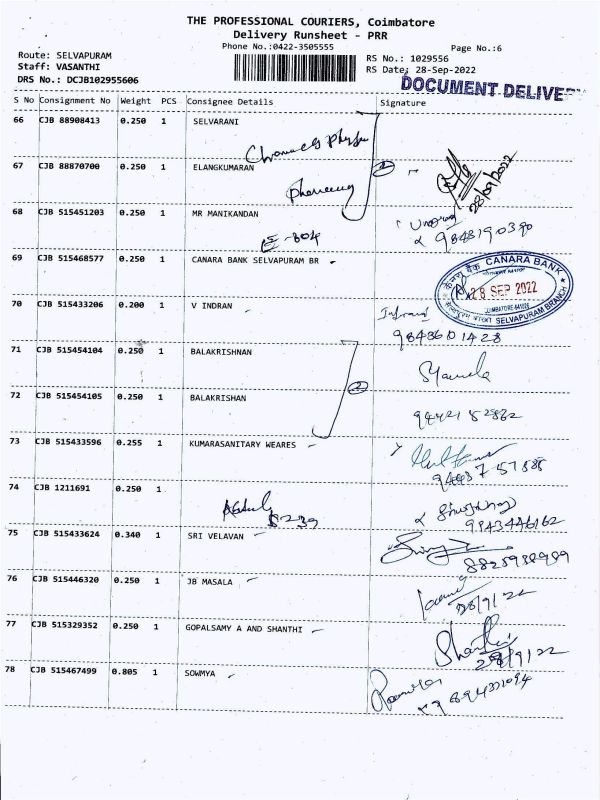 THE PROFESSIONAL COURIERS, Coimbatore
Delivery Runsheet - PRR
Phone No.:0422-3505555
Page No.:6
Route: SELVAPURAM
Staff: VASANTHI
DRS No.: DCJB102955606
RS No.: 1029556
RS Date: 28-Sep-2022
DOCUMENT DELIVE
S No Consignment No Weight PCS Consignee Details Signature
66 CJB 88908413 0.250 1 SELVARANI
67 CJB 88870700 0.250 1 ELANGKUMARAN
28/09/2022
68 CJB 515451203 0.250 1 MR MANIKANDAN
E-804
9848190390
69 CJB 515468577 0.250 1 CANARA BANK SELVAPURAM BR
CANARA BANK
28 SEP 2022
SELVAPURAM BRANCH
70 CJB 515433206 0.200 1 V INDRAN
9843601428
71 CJB 515454104 0.250 1 BALAKRISHNAN
2
72 CJB 515454105 0.250 1 BALAKRISHAN
73 CJB 515433596 0.255 1 KUMARASANITARY WEARES
74 CJB 1211691 0.250 1
9943446162
75 CJB 515433624 0.340 1 SRI VELAVAN
76 CJB 515446320 0.250 1 JB MASALA
28/9/22
77 CJB 515329352 0.250 1 GOPALSAMY A AND SHANTHI
Shanthi
28/9/22
78 CJB 515467499 0.805 1 SOWMYA